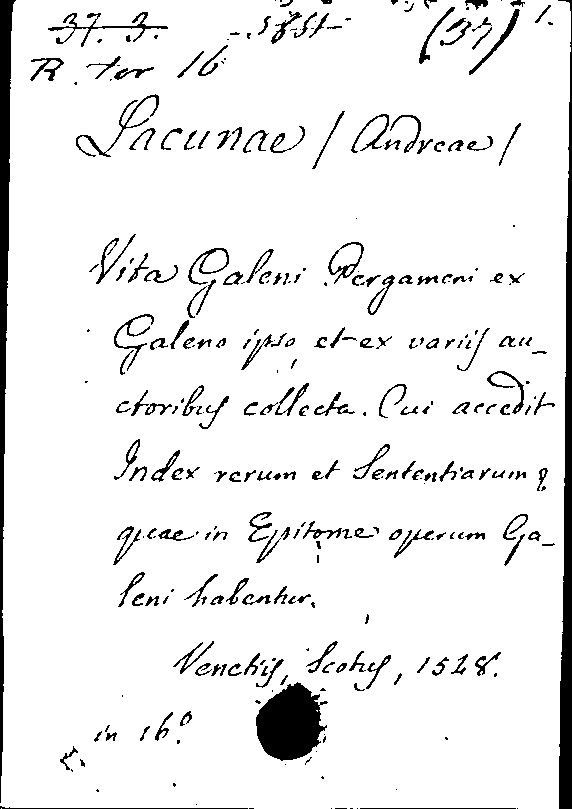 37. 3. (37) 1.
R. ter 16
Lacunae / Andreae /
Vita Galeni Pergameni ex
Galeno ipso, et ex variis au-
ctoribus collecta. Cui accedit
Index rerum et Sententiarum
quae in Epitome operum Ga-
leni habentur.
Venetiis, Scotus, 1528.
in 16º.